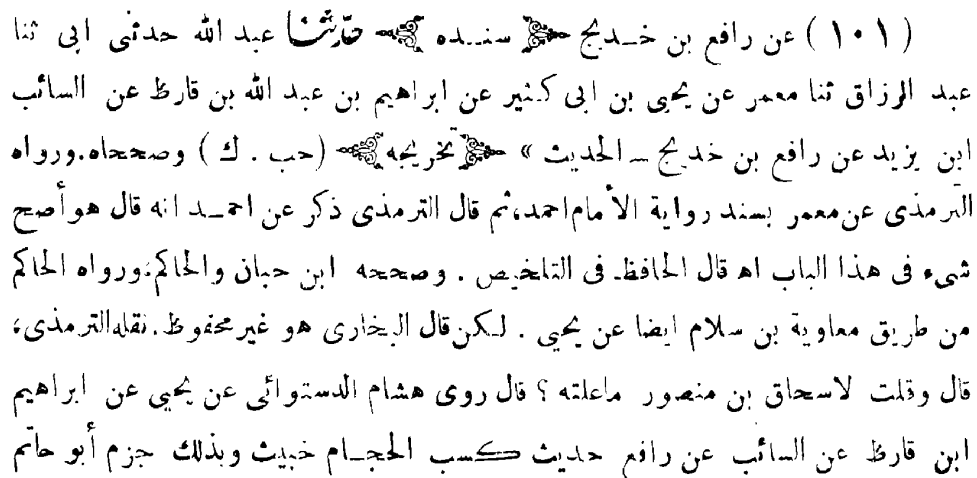 ( ١٠١ ) عن رافع بن خديج ﴿ سنده ﴾ حدّثنا عبد الله حدثنى ابى ثنا
عبد الرزاق ثنا معمر عن يحيى بن ابى كثير عن ابراهيم بن عبد الله بن قارظ عن السائب
ابن يزيد عن رافع بن خديج ــ الحديث » ﴿ تخريجه ﴾ (حب . ك ) وصححاه.ورواه
الترمذى عن معمر بسند رواية الأمام احمد،ثم قال الترمذى ذكر عن احمد انه قال هو أصح
شىء فى هذا الباب اه قال الحافظ فى التلخيص . وصححه ابن حبان والحاكم،ورواه الحاكم
من طريق معاوية بن سلام ايضا عن يحيى . لكن قال البخارى هو غير محفوظ.نقله الترمذى،
قال وقلت لاسحاق بن منصور ماعلته ؟ قال روى هشام الدستوائى عن يحيى عن ابراهيم
ابن قارظ عن السائب عن رافع حديث كسب الحجام خبيث وبذلك جزم أبو حاتم